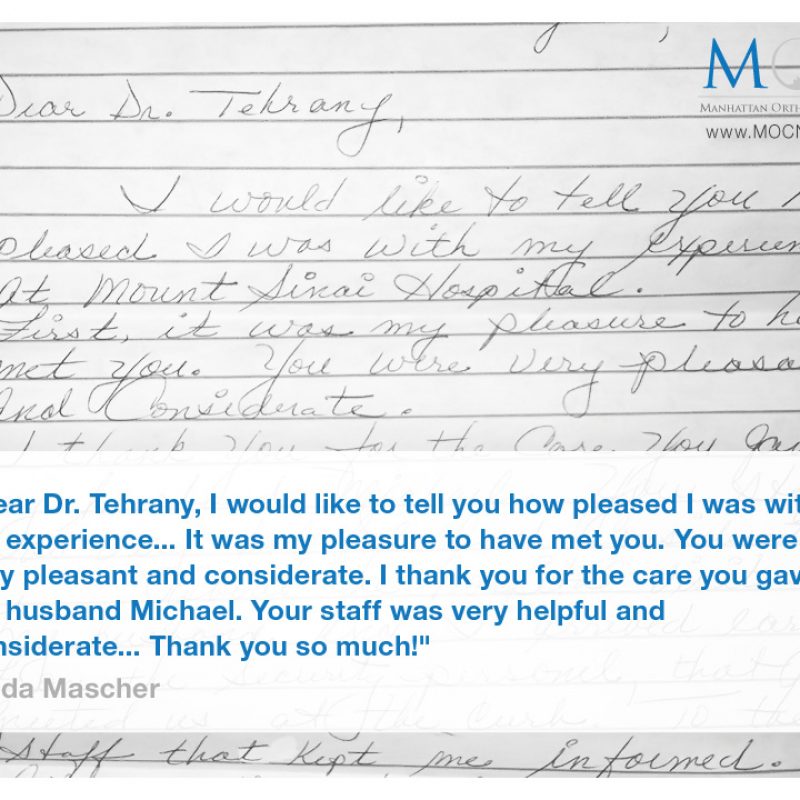 Dear Dr. Tehrany,
M
MANHATTAN ORTH
www.MOCN
I would like to tell you
pleased I was with my experien
At Mount Sinai Hospital.
First, it was my pleasure to h
met you. You were very pleasa
And Considerate.
I thank you for the Care you ga
ear Dr. Tehrany, I would like to tell you how pleased I was wit
experience... It was my pleasure to have met you. You were
y pleasant and considerate. I thank you for the care you gav
husband Michael. Your staff was very helpful and
nsiderate... Thank you so much!"
da Mascher
the security personnel, that
us at the curb. To the
Staff that kept me informed.